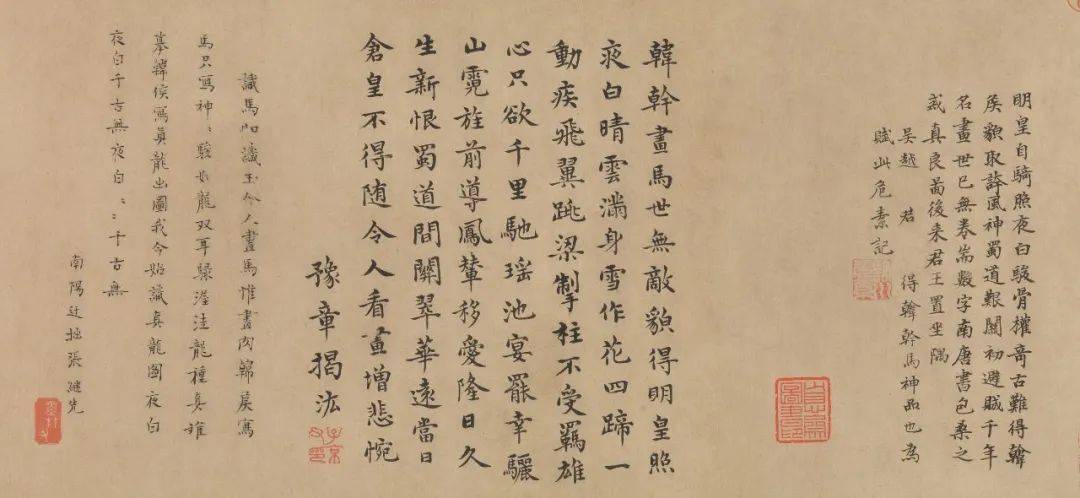 明皇自騎照夜白駿骨權奇古難得韓
矦貌取許風神蜀道艱關初避賊千年
名畫世已無卷耑數字南唐書包桑之
戒真良啚後来君王置坐隅
吳越 若 得韓幹馬神品也為
賦此危素記
韓幹畫馬世無敵貌得明皇照
夜白晴雲滿身雪作花四蹄一
動疾飛翼跳梁制挚柱不受羈雄
心只欲千里馳瑶池宴罷幸驪
山霓旌前導鳳輦移愛隆日久
生新恨蜀道間關翠華遠當日
倉皇不得随令人看畫增悲惋
豫章揭汯
識馬如識玉今人畫馬惟畫肉韓矦寫
馬只寫神神駿如龍双耳騄渥洼龍種真難
摹韓侯寫真龍出圖我今始識真龍圖夜白
夜白千古無夜白夜白千古無
南陽迂拙張繼先